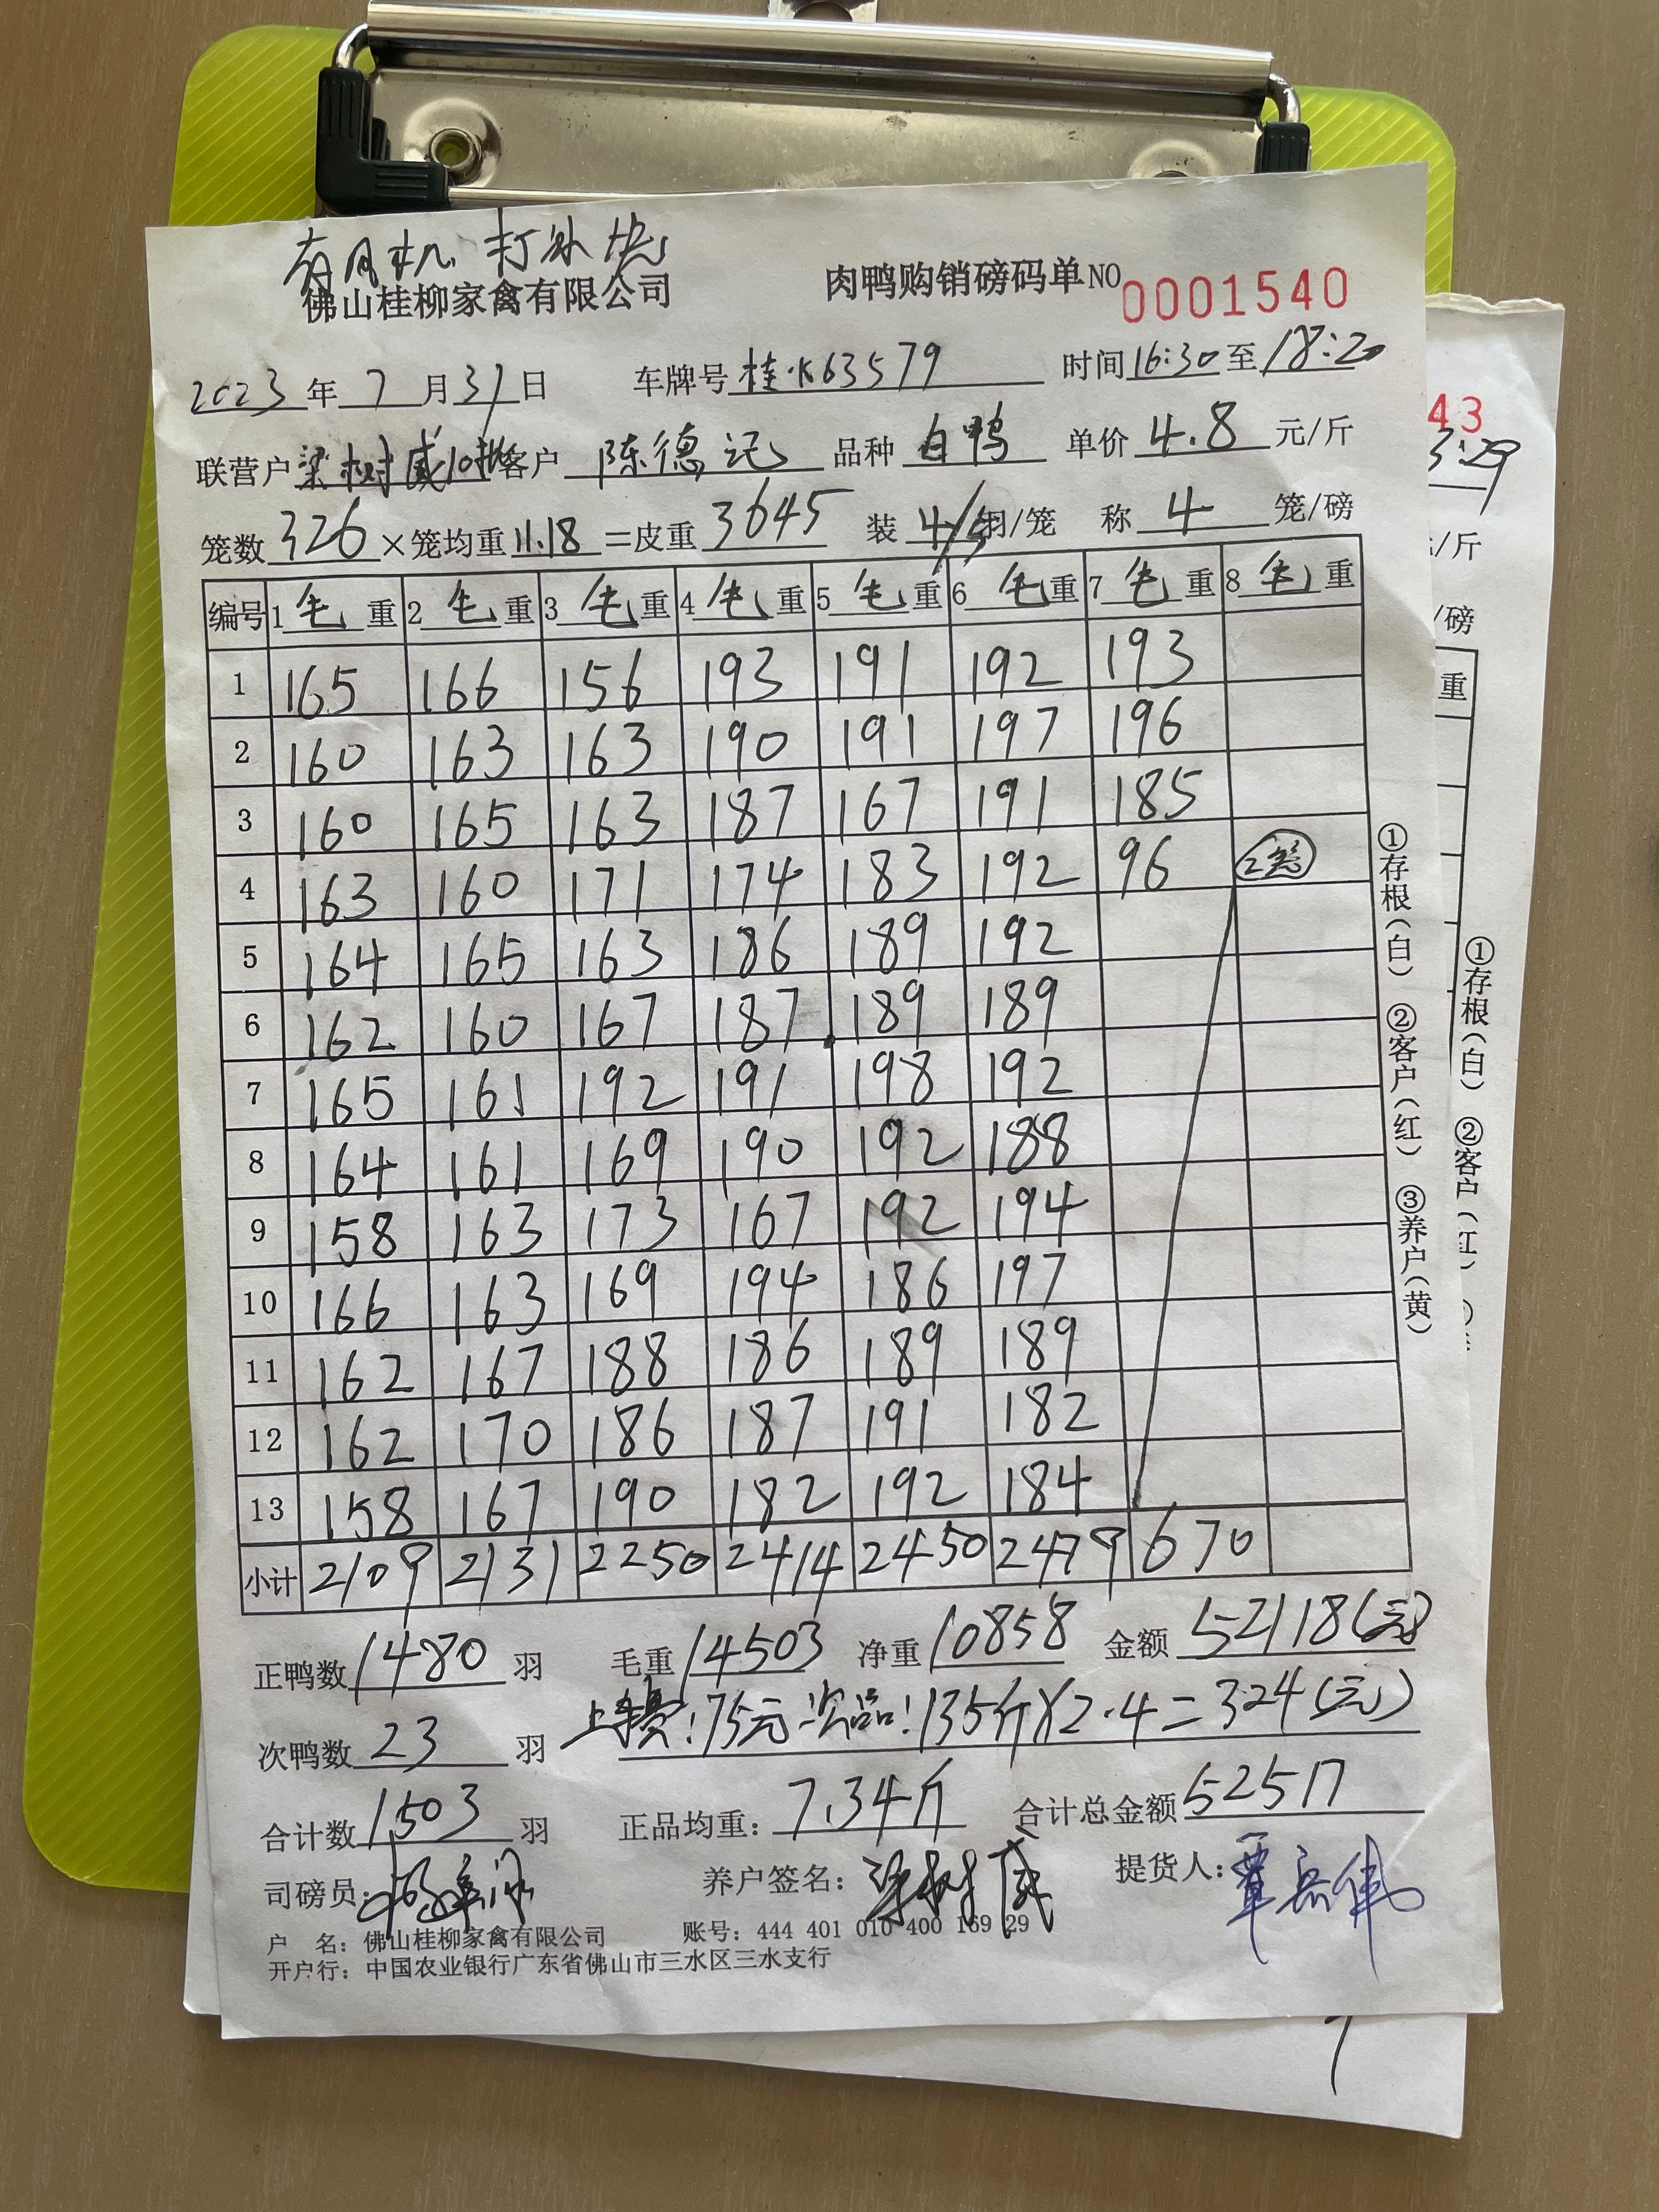 有风机 打冰块
佛山桂柳家禽有限公司 肉鸭购销磅码单NO 0001540
2023年7月31日 车牌号桂K63579 时间16:30至18:20
联营户梁树威10批客户陈德记 品种白鸭 单价4.8元/斤
笼数326×笼均重11.18=皮重3645 装4/5羽/笼 称4笼/磅
编号 1毛重 2毛重 3毛重 4毛重 5毛重 6毛重 7毛重 8毛重
1 165 166 156 193 191 192 193
2 160 163 163 190 191 197 196
3 160 165 163 187 167 191 185
4 163 160 171 174 183 192 96 2笼
5 164 165 163 186 189 192
6 162 160 167 187 189 189
7 165 161 192 191 198 192
8 164 161 169 190 192 188
9 158 163 173 167 192 194
10 166 163 169 194 186 197
11 162 167 188 186 189 189
12 162 170 186 187 191 182
13 158 167 190 182 192 184
小计 2109 2131 2250 2414 2450 2479 670
正鸭数1480羽 毛重14503 净重10858 金额52118(元)
次鸭数23羽 上车费:75元 次品:135斤×2.4=324(元)
合计数1503羽 正品均重:7.34斤 合计总金额52517
司磅员: 养户签名:梁树威 提货人:覃岳伟
户 名:佛山桂柳家禽有限公司 账号:444 401 010 400 169 29
开户行:中国农业银行广东省佛山市三水区三水支行
①存根(白) ②客户(红) ③养户(黄)
43
3:29
/斤
/磅
重
①存根(白) ②客户(红)